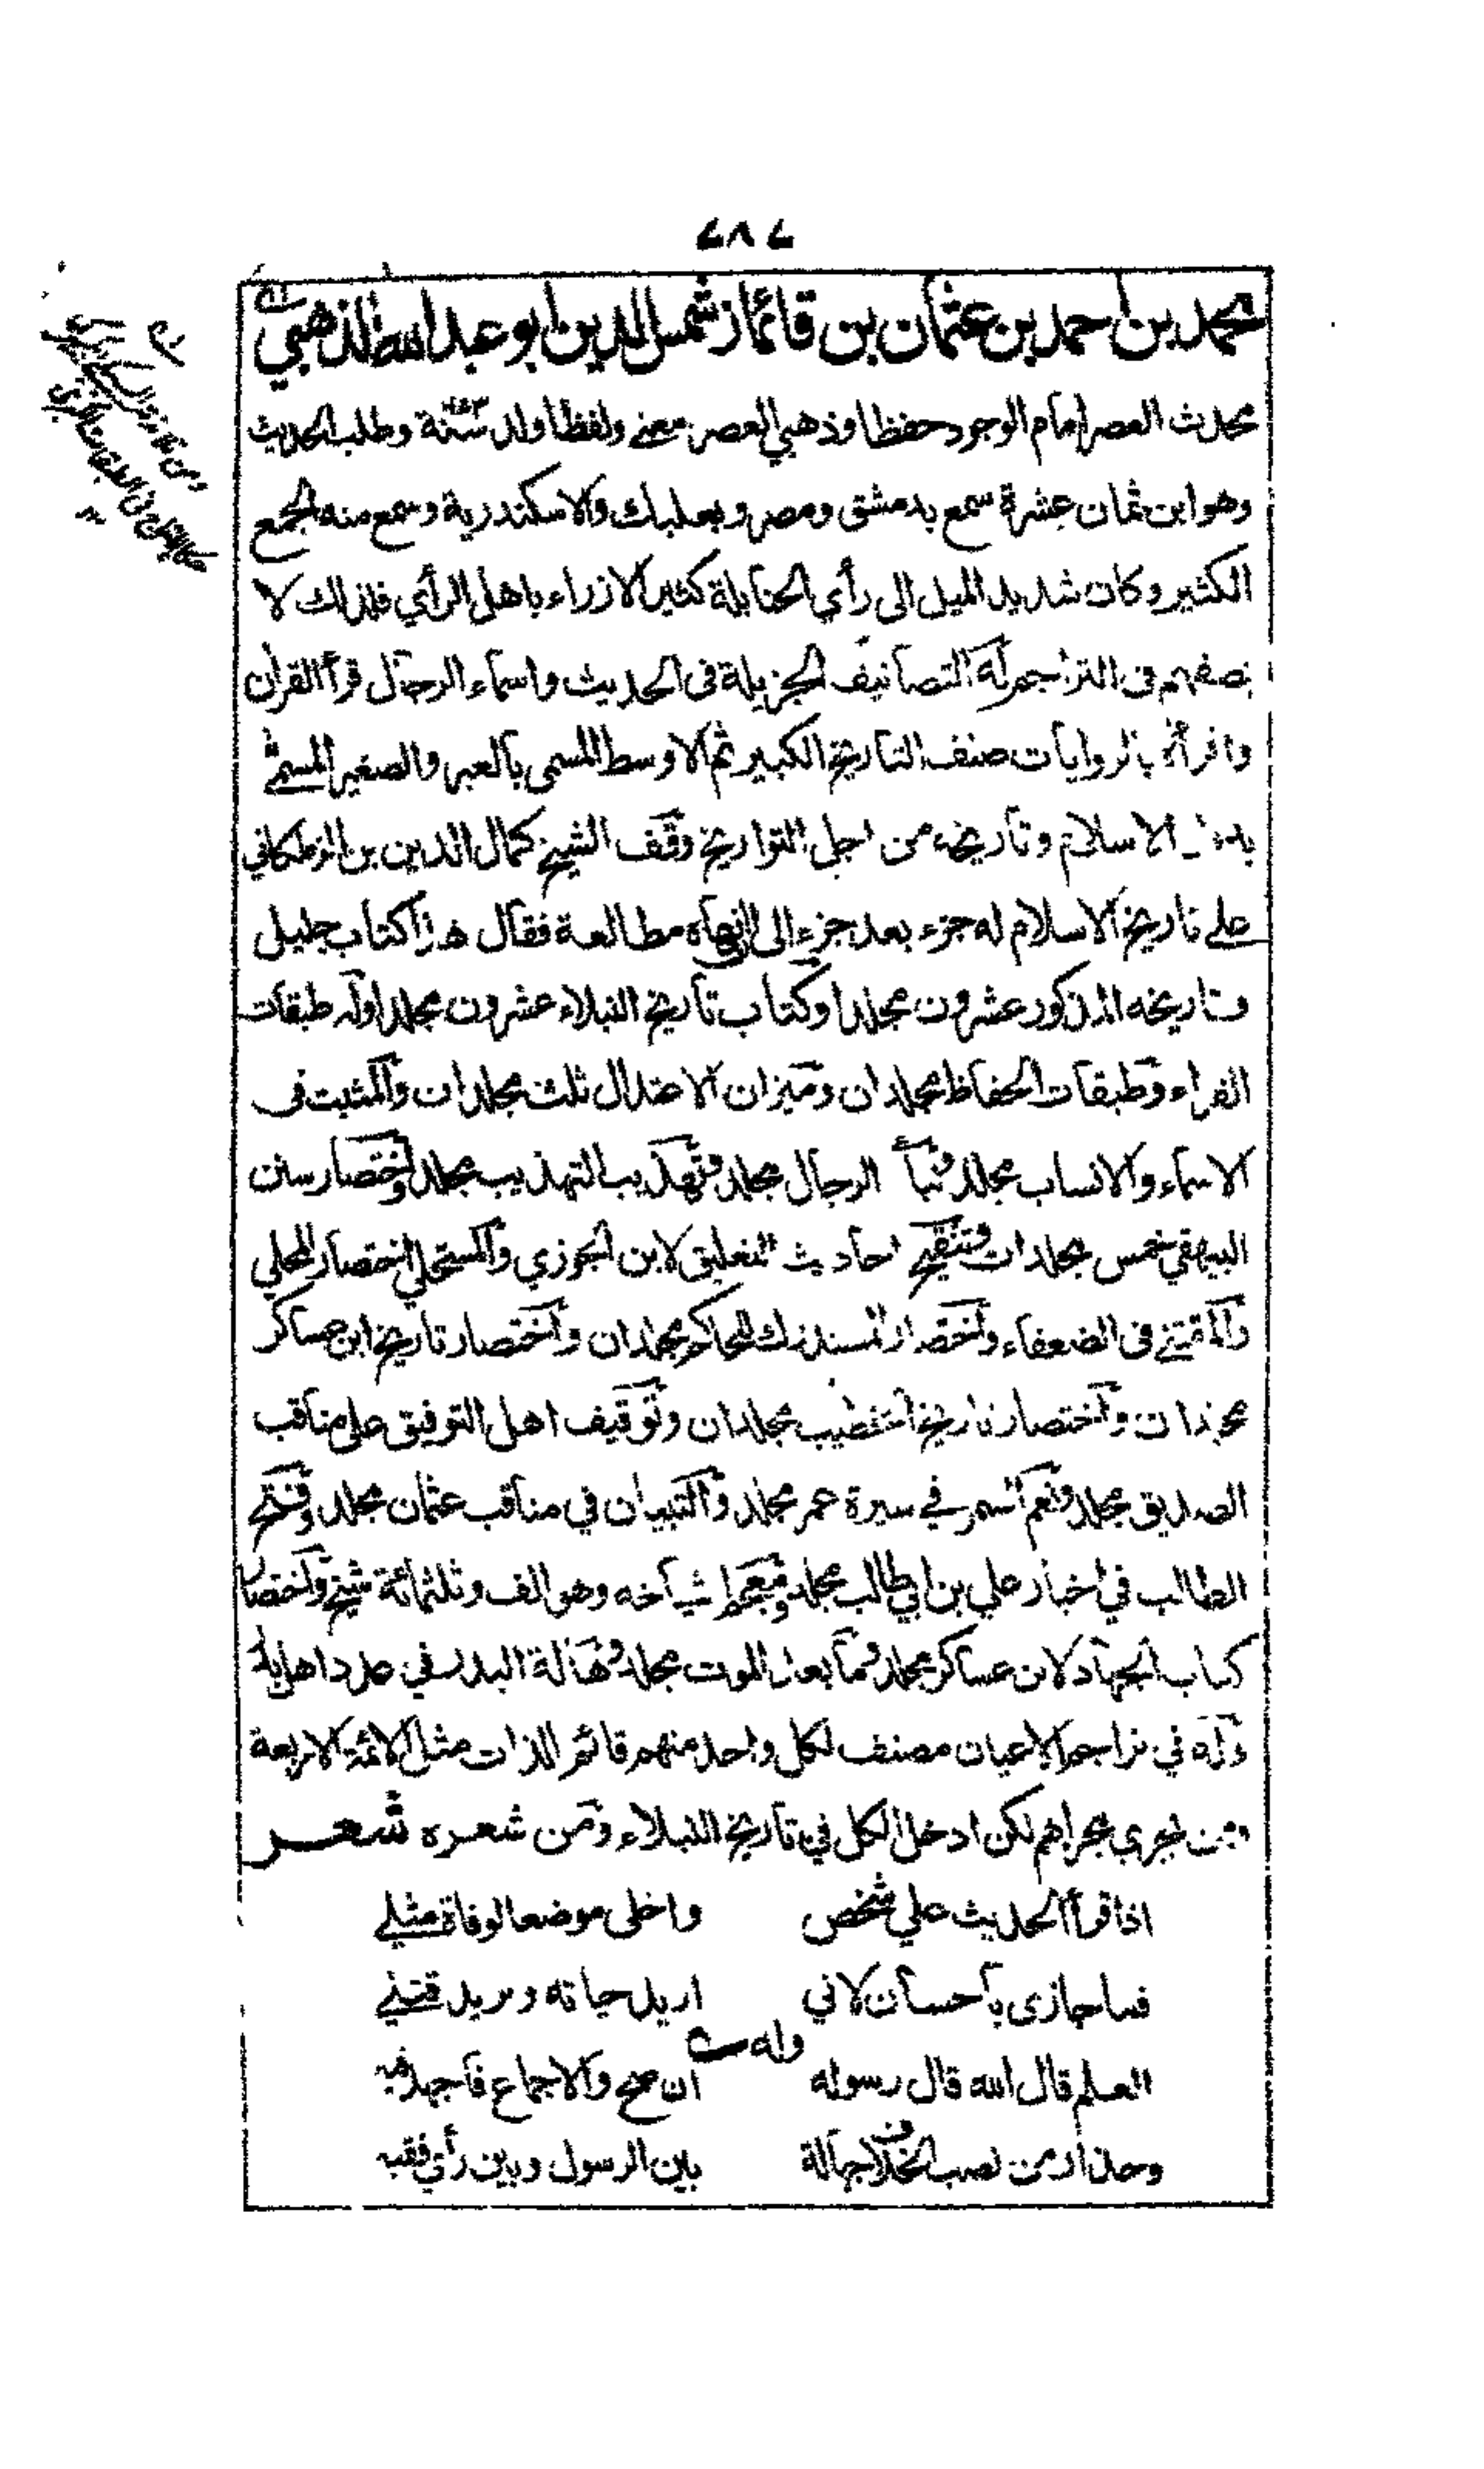 ٢٨٢
محمد بن احمد بن عثمان بن قائماز شمس الدين ابو عبد الله الذهبي
محدث العصر امام الوجود حفظا وذهبي العصر معنى ولفظا ولد سنة وطلب الحديث
وهو ابن ثمان عشرة سمع بدمشق ومصر وبعلبك والاسكندرية وسمع منه الجمع
الكثير وكان شديد الميل الى رأي الحنابلة كثير الازراء باهل الرأي فلذلك لا
ينصفهم في التراجم له التصانيف الجزيلة في الحديث واسماء الرجال قرأ القرآن
واقرأه بالروايات صنف التاريخ الكبير ثم الاوسط المسمى بالعبر والصغير المسمى
الاسلام وتاريخه من اجل التواريخ وقف الشيخ كمال الدين بن الزملكاني
على تاريخ الاسلام له جزء بعد جزء الى انهاه مطالعة فقال هذا كتاب جليل
وتاريخه المذكور عشرون مجلدا وكتاب تاريخ النبلاء عشرون مجلدا وله طبقات
القراء وطبقات الحفاظ مجلدان وميزان الاعتدال ثلث مجلدات والمثبت في
الاسماء والانساب مجلد الرجال مجلد وتهذيب التهذيب مجلد واختصار سنن
البيهقي خمس مجلدات وتنقيح احاديث التعليق لابن الجوزي والمستحلى اختصار المحلى
والمقتنى في الضعفاء واختصار المستدرك للحاكم مجلدان واختصار تاريخ ابن عساكر
مجلدات واختصار تاريخ الخطيب مجلدان وتوقيف اهل التوفيق على مناقب
الصديق مجلد ونعم السمر في سيرة عمر مجلد والتبيان في مناقب عثمان مجلد وفتح
الطالب في اخبار علي بن ابي طالب مجلد ومعجم اشياخه وهو الف وثلثمائة شيخ واختصار
كتاب الجهاد لابن عساكر مجلد وما بعد الموت مجلد وهالة البدر في عدد اهل بدر
وله في تراجم الاعيان مصنف لكل واحد منهم قائم الذات مثل الائمة الاربعة
ومن يجري مجراهم لكن ادخل الكل في تاريخ النبلاء ومن شعره شعر
اذا قرأ الحديث علي شخص واخلى موضعا لوفاة مثلي
فما جازى باحسان لاني اريد حياته ويريد قتلي
وله
العلم قال الله قال رسوله ان صح والاجماع فاجهد فيه
وحذار من نصب الخلاف جهالة بين الرسول وبين رأي فقيه